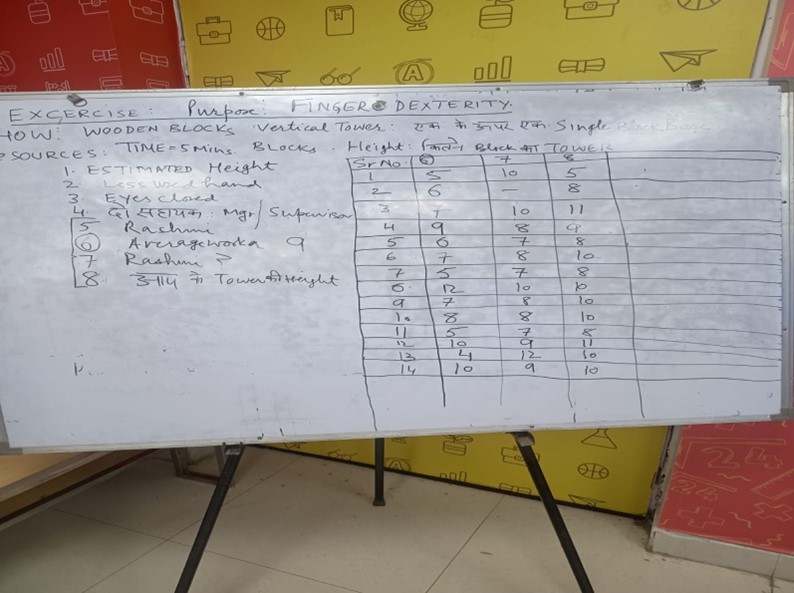 EXCERCISE: Purpose: FINGER DEXTERITY.
HOW: WOODEN BLOCKS Vertical Tower: एक के ऊपर एक Single Block Base
RESOURCES: TIME=5 Mins. BLOCKS. Height: कितने Block का TOWER
1. ESTIMATED Height
2 Less used hand
3. Eyes closed
4. दो सहायक: Mgr/Supervisor
5 Rashmi
6 Average worka 9
7 Rashmi ?
8. आप के Tower की Height
Sr No. 6 7 8
1 5 10 5
2 6 — 8
3 7 10 11
4 9 8 9
5 6 7 8
6 7 8 10
7 5 7 8
8. 12 10 10
9 7 8 10
10 8 8 10
11 5 7 8
12 10 9 11
13 4 12 10
14 10 9 10